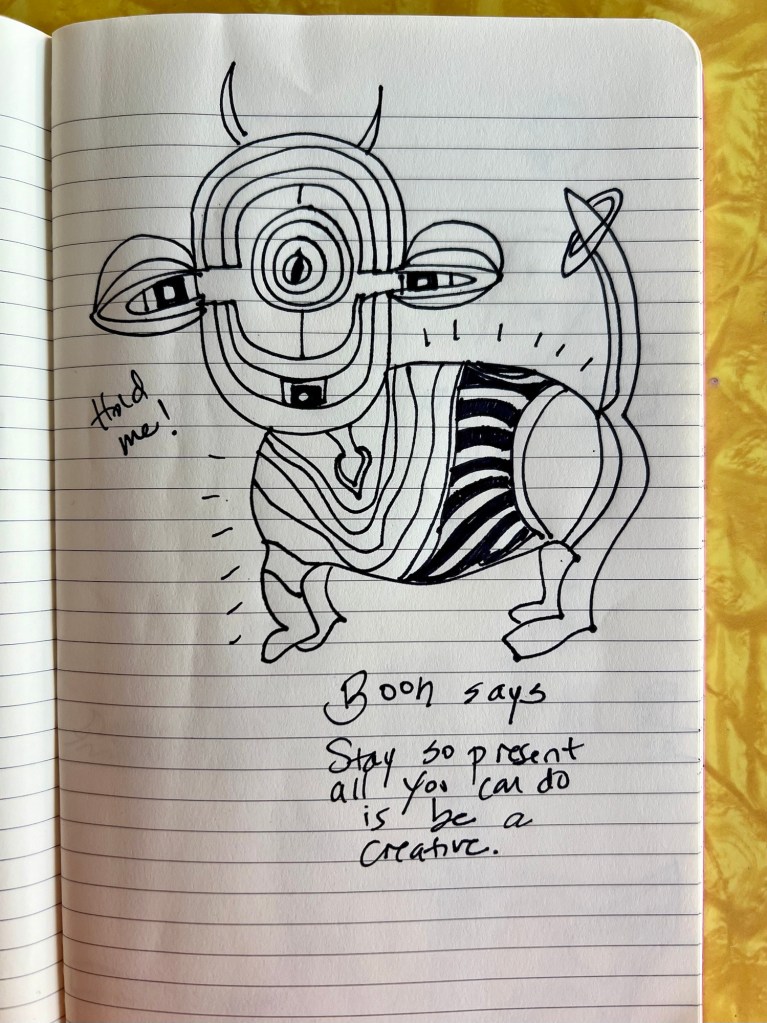 Hold
me!
Booh says
Stay so present
all you can do
is be a
creative.